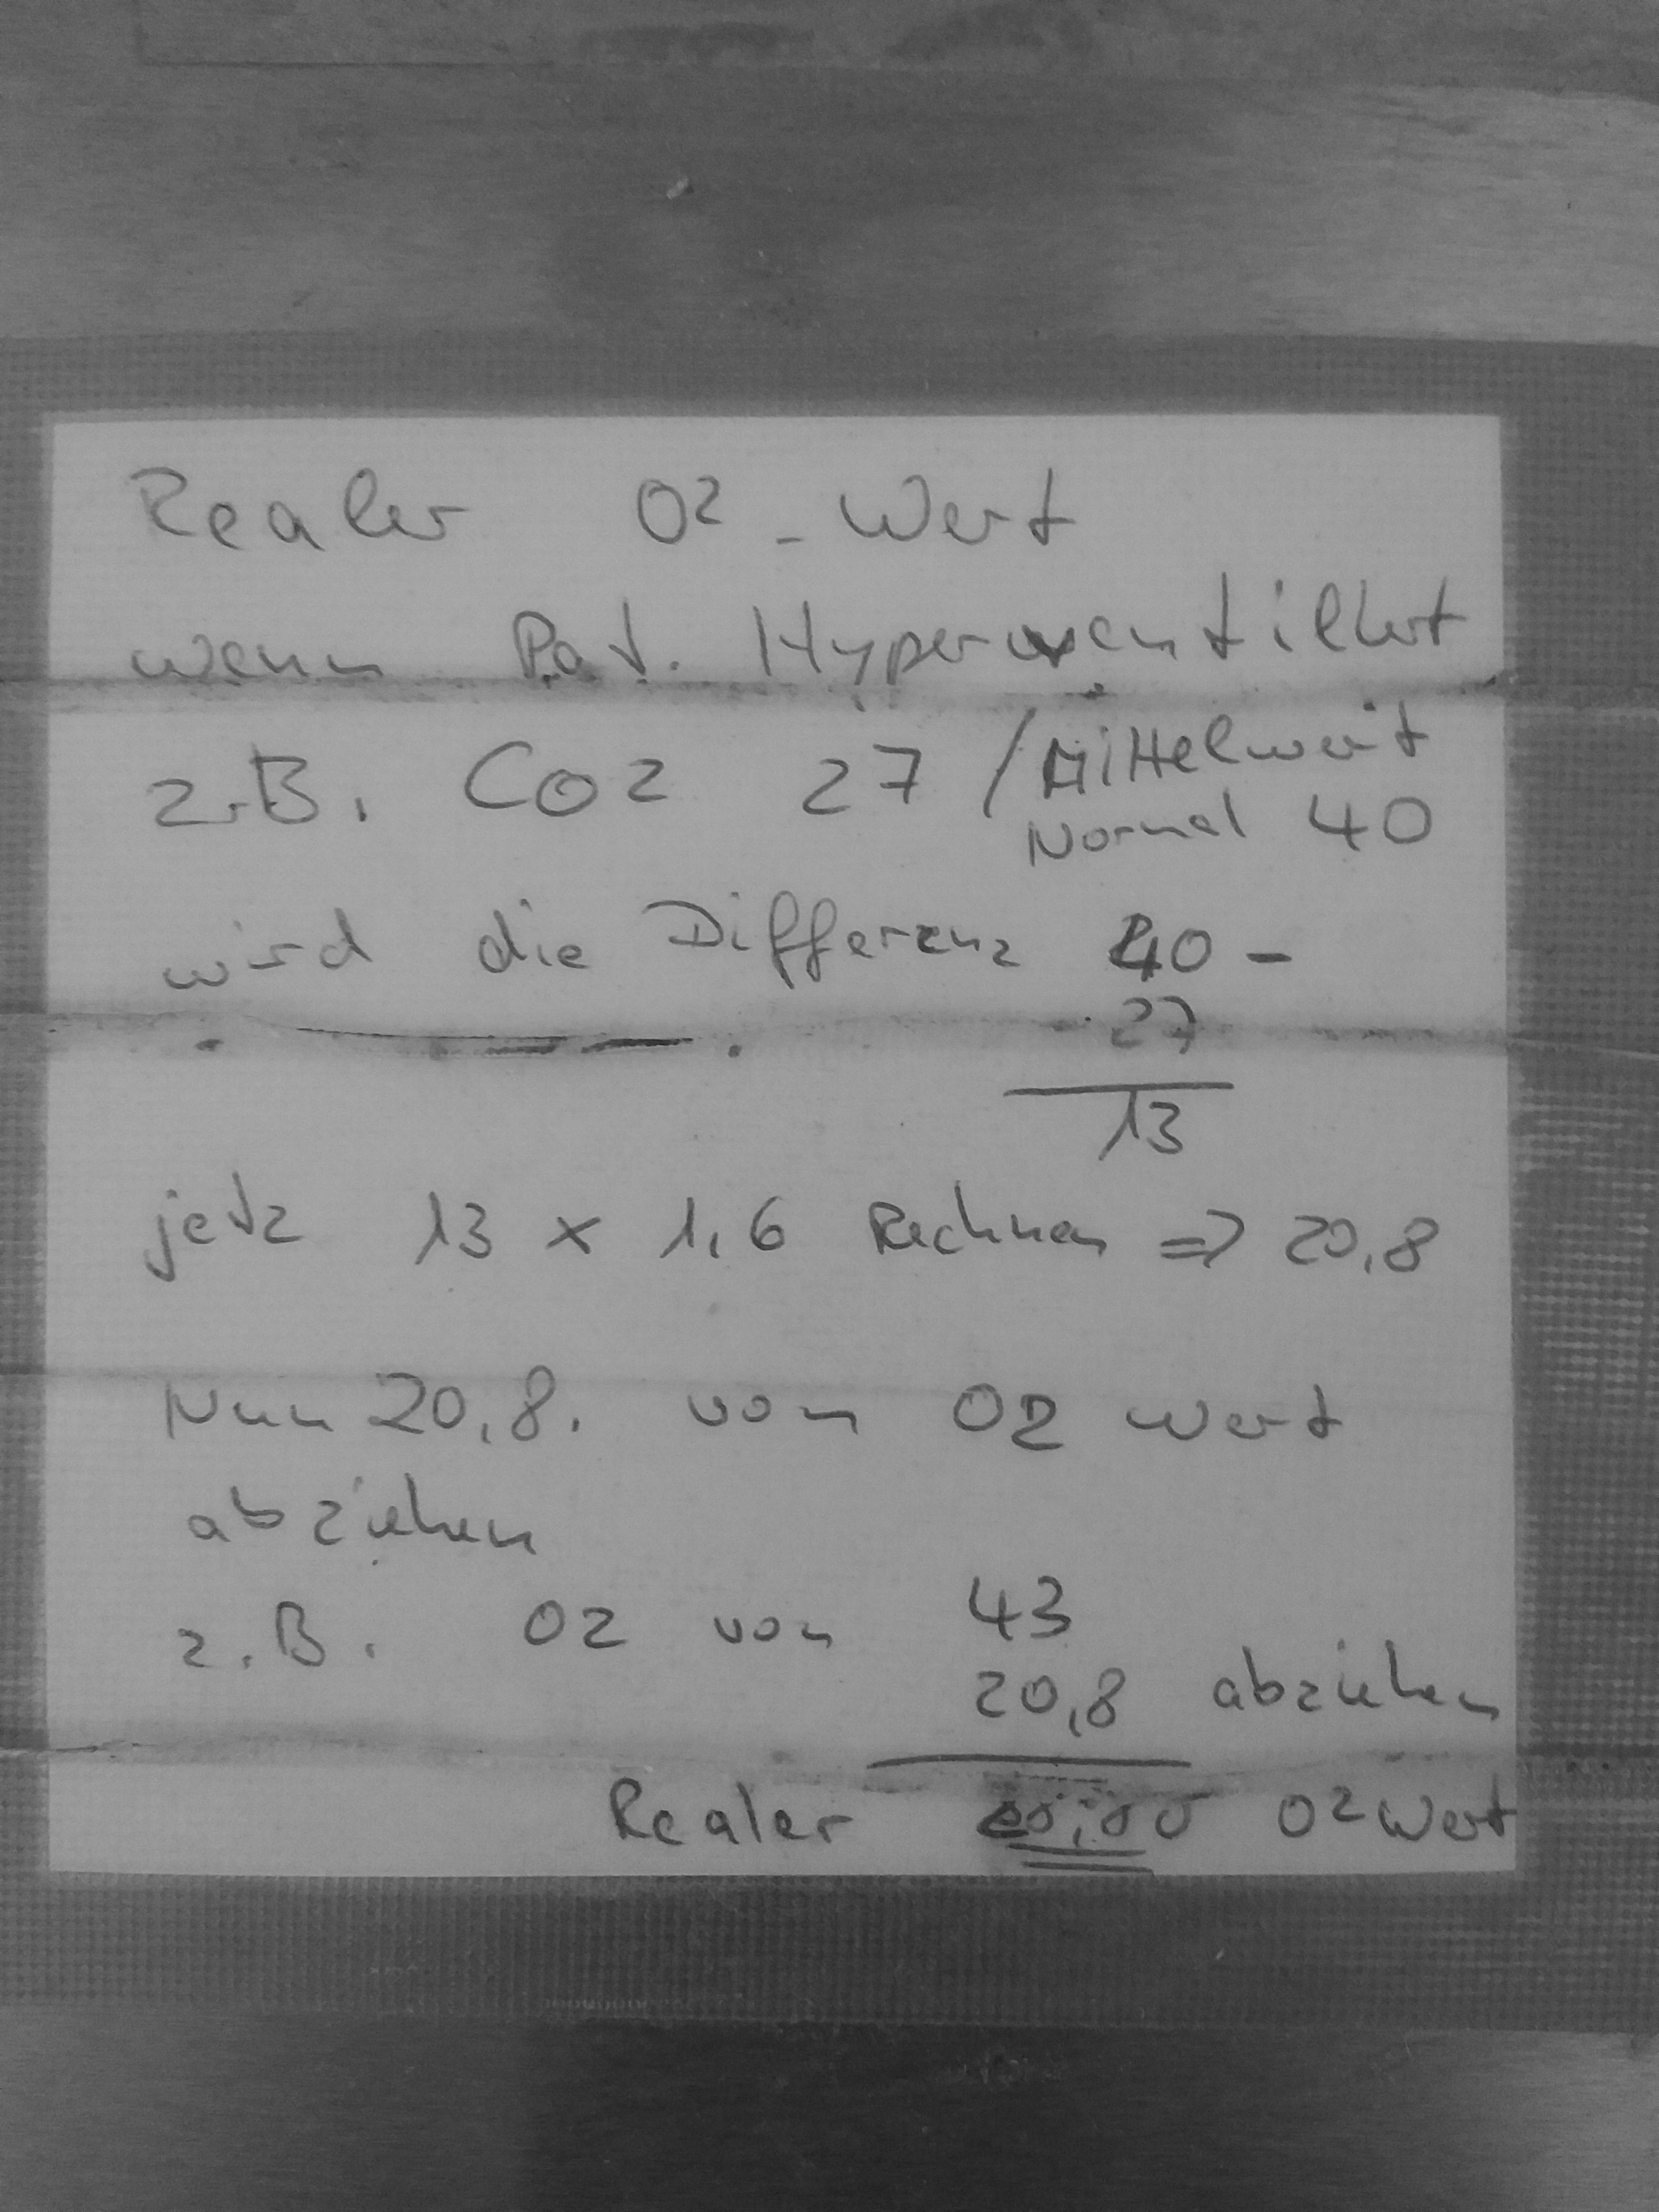 Realer O2 - Wert
wenn Pat. Hyperventiliert
z.B. CO2 27 / Mittelwert
Normal 40
wird die Differenz 40 -
27
13
jetz 13 x 1,6 Rechnen => 20,8
Nun 20,8. von O2 wert
abziehen
z.B. O2 von 43
20,8 abziehen
Realer O2 Wert